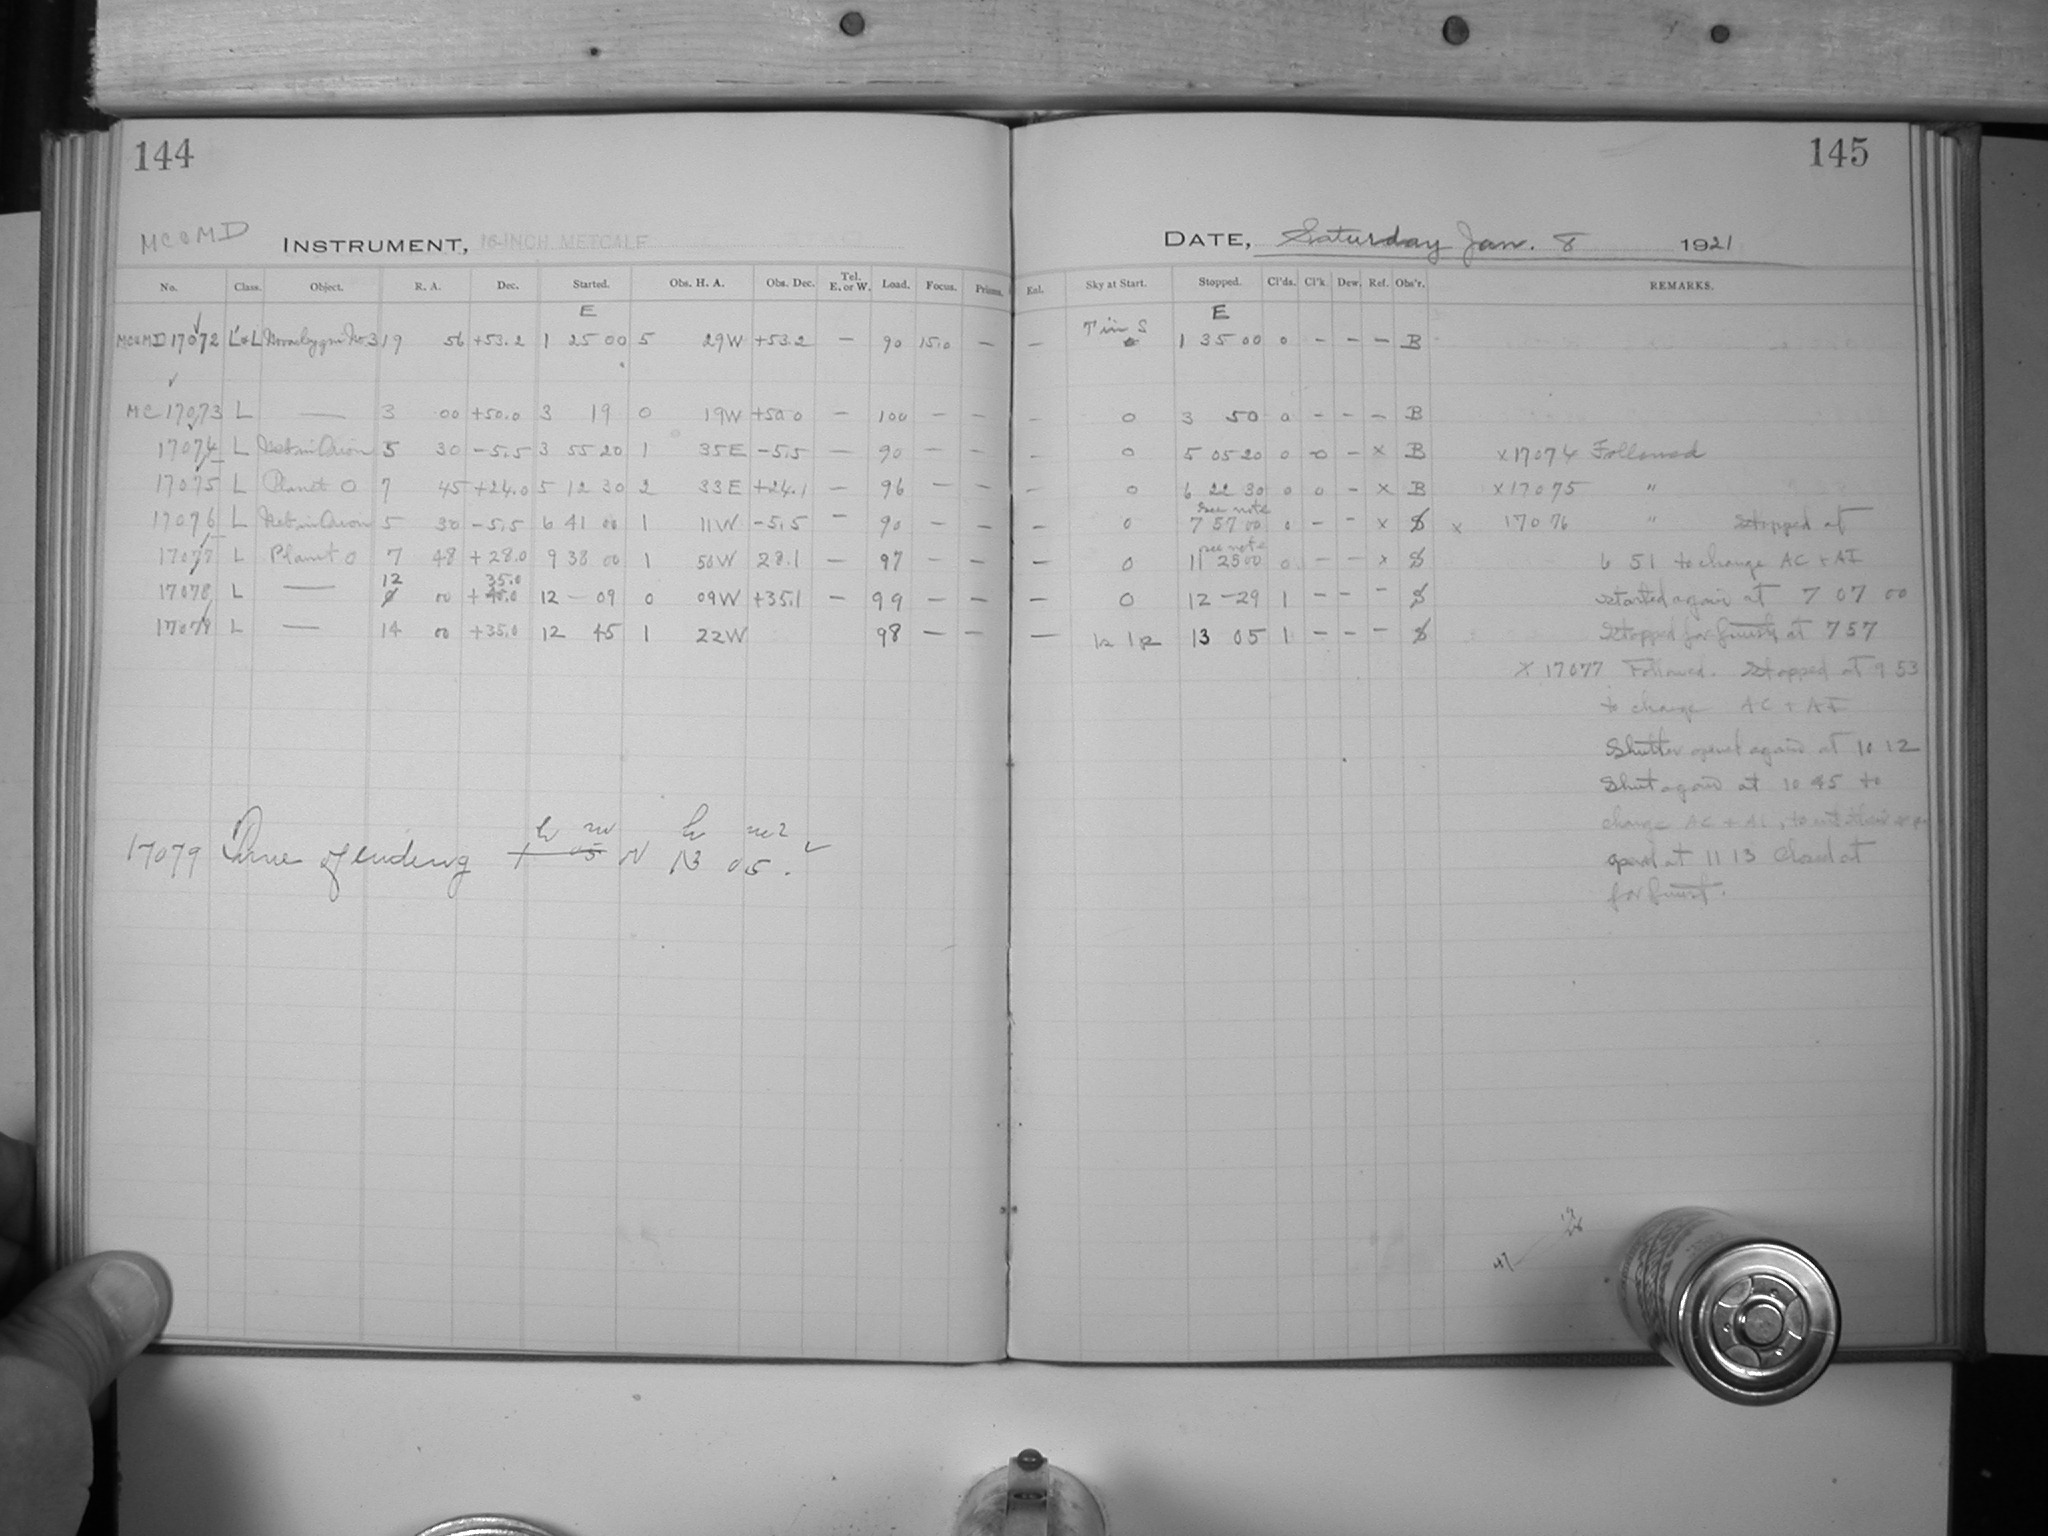 144
MC & MD INSTRUMENT, 16-INCH METCALF
No. Class. Object. R. A. Dec. Started. Obs. H. A. Obs. Dec. Tel. E. or W. Load. Focus. Prisms.
E
MC & MD 17072 L & L Nova Cygni No. 3 19 56 +53.2 1 25 00 5 29W +53.2 — 90 15.0 —
MC 17073 L — 3 00 +50.0 3 19 0 19W +50.0 — 100 — —
17074 L Neb in Orion 5 30 -5.5 3 55 20 1 35E -5.5 — 90 — —
17075 L Planet O 7 45 +24.0 5 12 30 2 33E +24.1 — 96 — —
17076 L Neb in Orion 5 30 -5.5 6 41 00 1 11W -5.5 — 90 — —
17077 L Planet O 7 48 +28.0 9 38 00 1 50W 28.1 — 97 — —
17078 L — 12 00 +35.0 12 — 09 0 09W +35.1 — 99 — —
17079 L — 14 00 +35.0 12 45 1 22W 98 — —
h m h m
17079 Time of ending 1 05 or 13 05.
145
DATE, Saturday Jan. 8 1921
Enl. Sky at Start. Stopped. Cl'ds. Cl'k. Dew. Ref. Obs'r. REMARKS.
E
— T in S 0 1 35 00 0 — — — B
— 0 3 50 0 — — — B
— 0 5 05 20 0 0 — x B x 17074 Followed
— 0 6 22 30 0 0 — x B x 17075 "
see note
— 0 7 57 00 0 — — x S x 17076 " Stopped at
see note
— 0 11 28 00 0 — — x S 6 51 to change AC + AI
— 0 12 — 29 1 — — — S started again at 7 07 00
— 13 05 1 — — — S Stopped for finish at 7 57
x 17077 Followed. Stopped at 9 53
to change AC + AI
Shutter opened again at 10 12
Shut again at 10 45 to
change AC + AI,
opened at 11 13 Closed at
for finish.